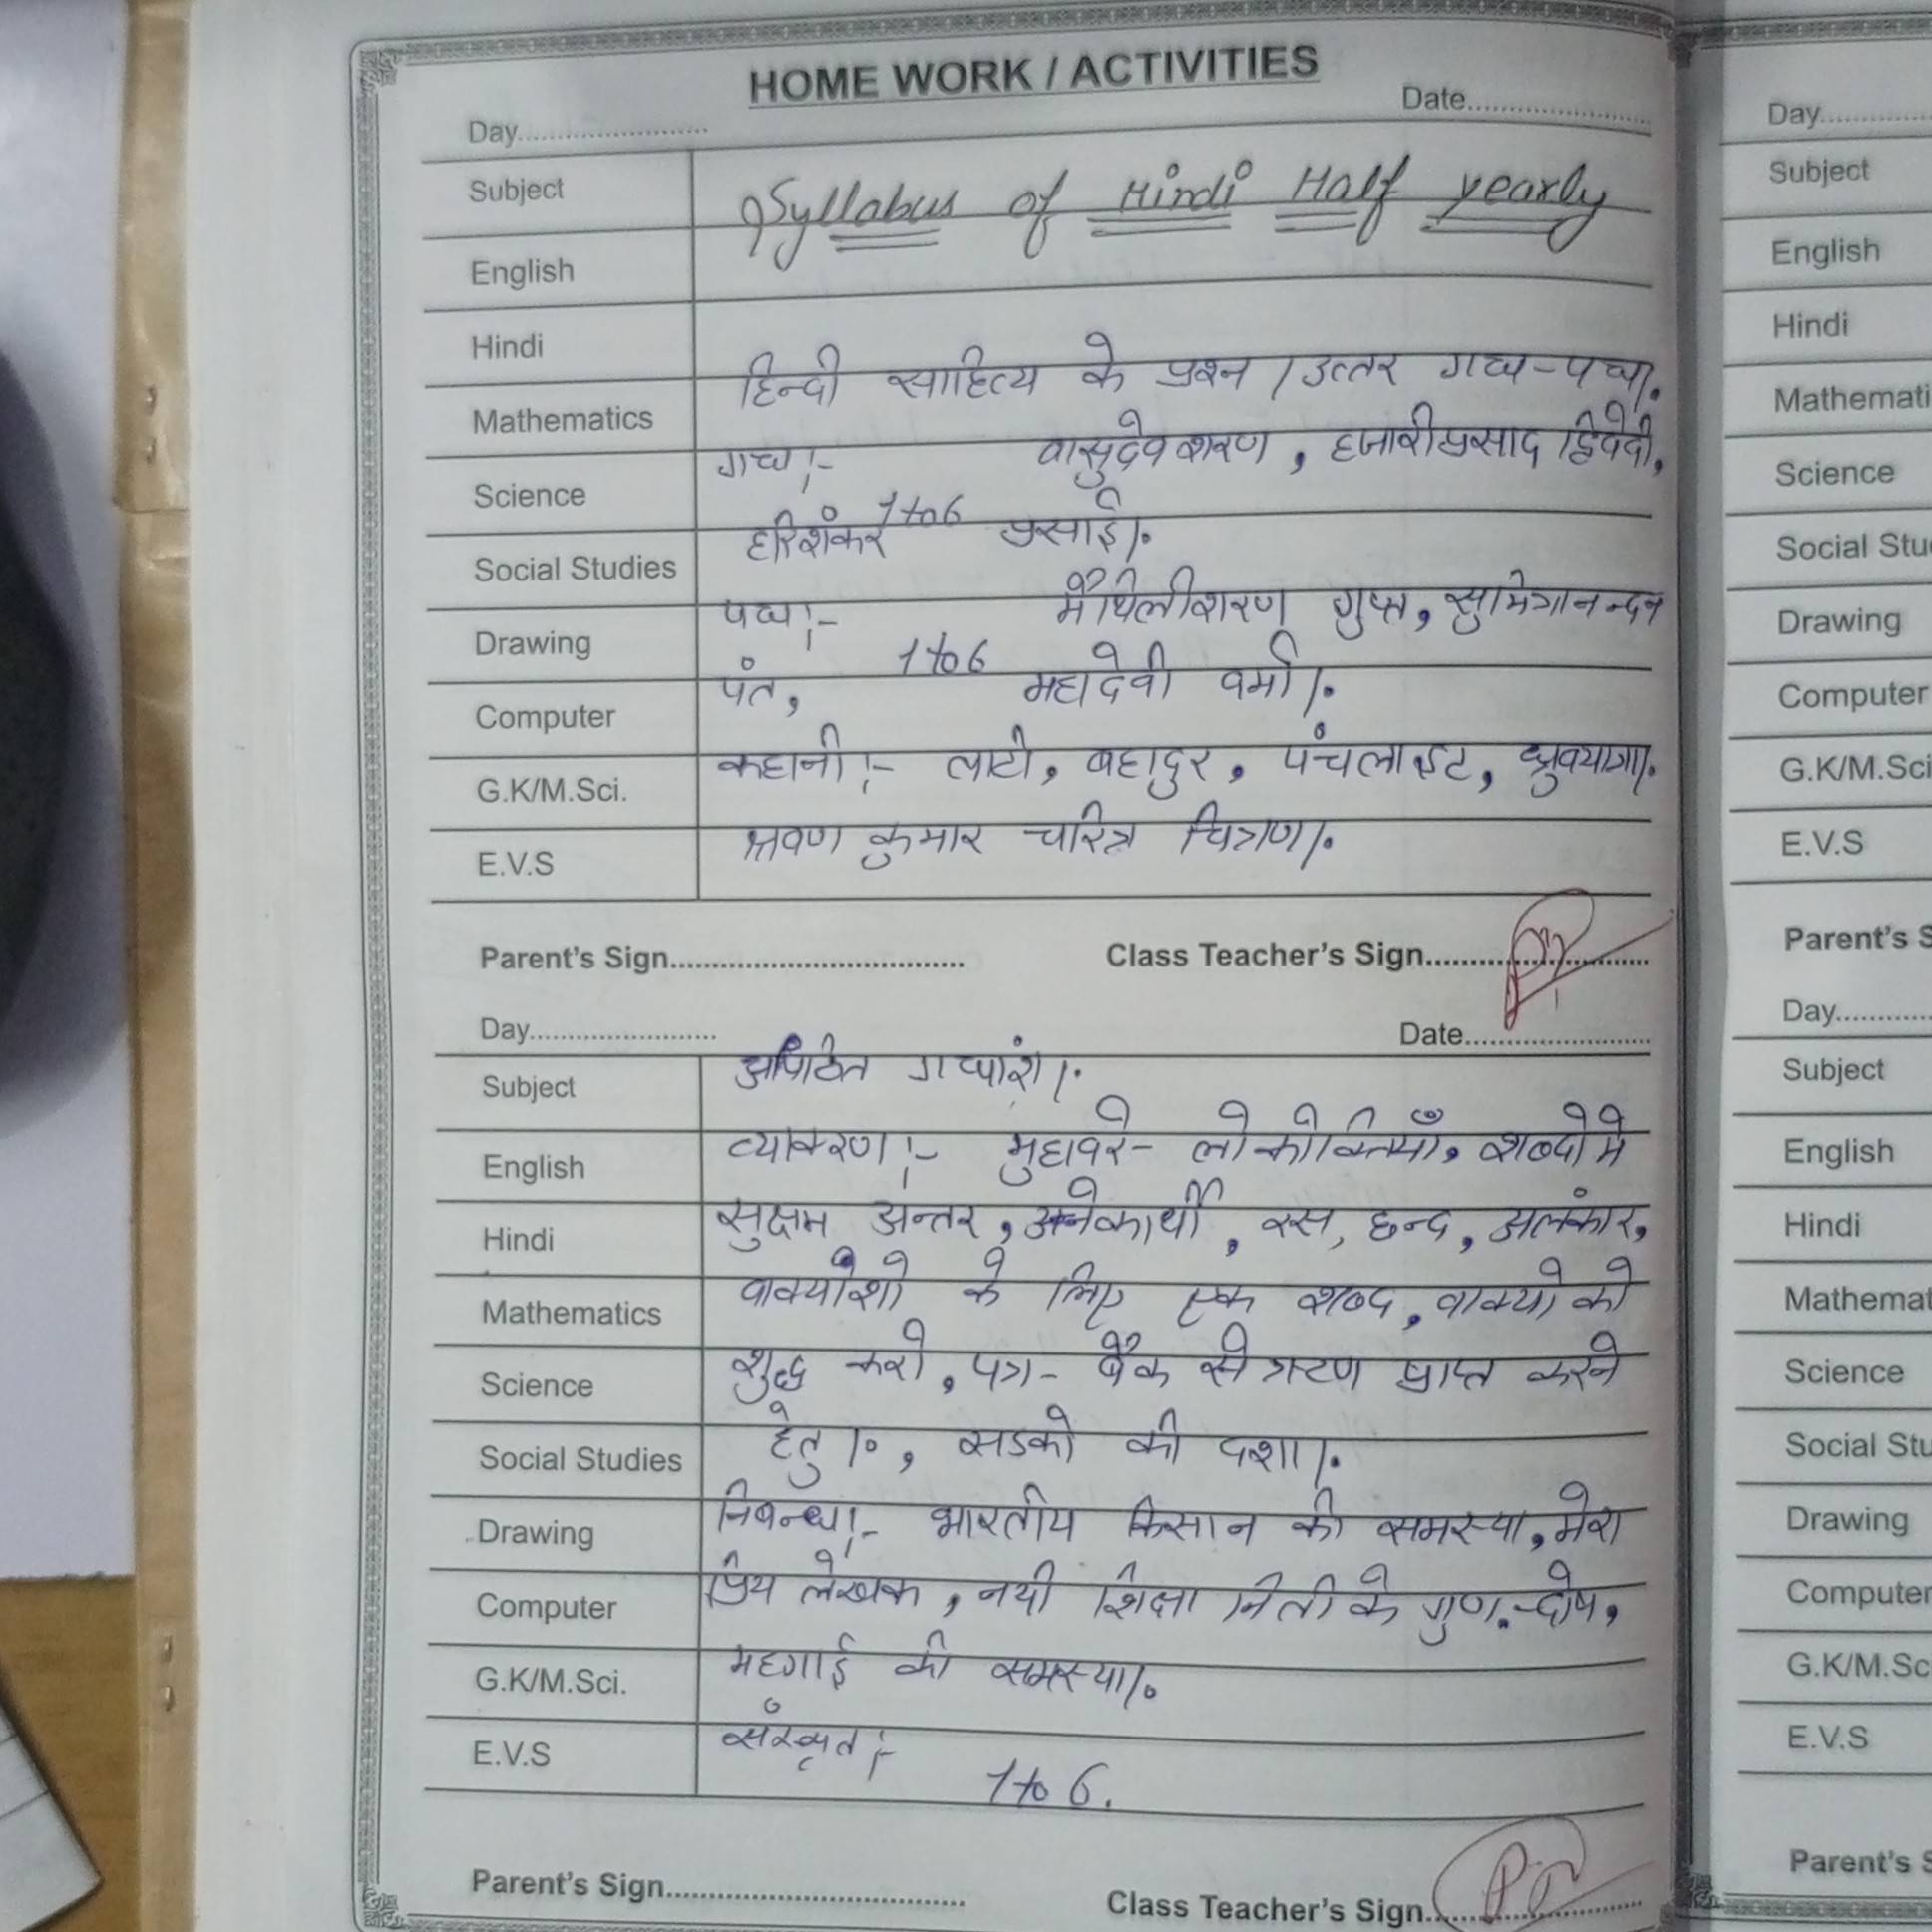 HOME WORK / ACTIVITIES
Day........................ Date........................
Subject Syllabus of Hindi Half yearly
English
Hindi
हिन्दी साहित्य के प्रश्न / उत्तर गद्य - पद्य।.
Mathematics
गद्य :- वासुदेव शरण , हजारीप्रसाद द्विवेदी,
Science
हरिशंकर 1 to 6 प्रसाई।.
Social Studies
पद्य :- मैथिलीशरण गुप्त, सुमित्रानन्दन
Drawing
पंत, 1 to 6 महादेवी वर्मा।.
Computer
कहानी :- लाटी, बहादुर, पंचलाइट, ध्रुवयात्रा।.
G.K/M.Sci.
श्रवण कुमार चरित्र चित्रण।.
E.V.S
Parent's Sign.................................. Class Teacher's Sign..........................
Day........................ Date........................
अपठित गद्यांश।.
Subject
व्याकरण :- मुहावरे - लोकोक्तियाँ, शब्दो मे
English
सुक्षम अन्तर , अनेकार्थी , रस, छन्द, अलंकार,
Hindi
वाक्यांशो के लिए एक शब्द, वाक्यो को
Mathematics
शुद्ध करो, पत्र - बैंक से ऋण प्राप्त करने
Science
हेतु।. , सडको की दशा।.
Social Studies
निबन्ध :- भारतीय किसान की समस्या, मेरा
Drawing
प्रिय लेखक , नयी शिक्षा निती के गुण - दोष,
Computer
महगाई की समस्या।.
G.K/M.Sci.
संस्कृत :-
E.V.S 1 to 6.
Parent's Sign.................................. Class Teacher's Sign..........................
Day
Subject
English
Hindi
Mathemati
Science
Social Stu
Drawing
Computer
G.K/M.Sci
E.V.S
Parent's S
Day
Subject
English
Hindi
Mathemat
Science
Social Stu
Drawing
Computer
G.K/M.Sc
E.V.S
Parent's S